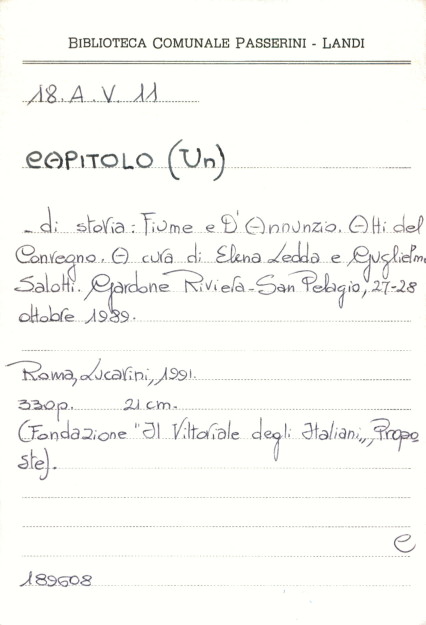 BIBLIOTECA COMUNALE PASSERINI - LANDI
18. A. V. 11
CAPITOLO (Un)
- di storia: Fiume e D'Annunzio. Atti del
Convegno. A cura di Elena Ledda e Guglielmo
Salotti. Gardone Riviera-San Pelagio, 27-28
ottobre 1989.
Roma, Lucarini, 1991.
330p. 21 cm.
(Fondazione "Il Vittoriale degli Italiani,, Propo
ste).
e
189608